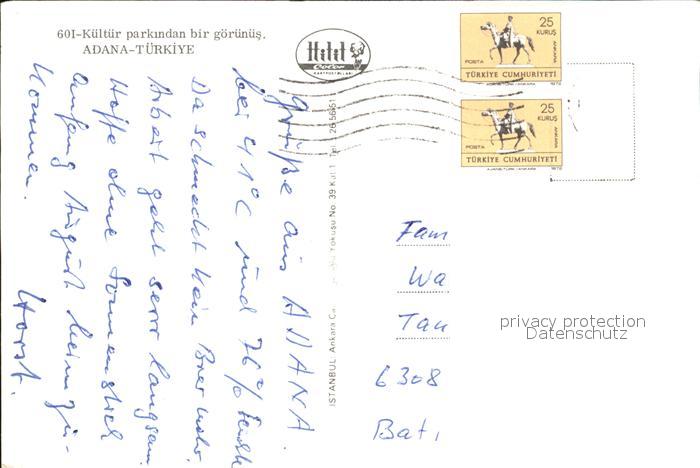 601-Kültür parkından bir görünüş.
ADANA-TÜRKİYE
Hitit
Color
KARTPOSTALLARI
25
KURUŞ
ANKARA
POSTA
TÜRKİYE CUMHURİYETİ
AJANS-TÜRK / ANKARA 1972
25
KURUŞ
ANKARA
POSTA
TÜRKİYE CUMHURİYETİ
AJANS-TÜRK / ANKARA 1972
Grüße aus ADANA.
bei 41°C und 76% Feucht
Da schmeckt kein Bier mehr.
Arbeit geht sehr langsam.
Hoffe ohne Sonnenstich
Anfang August heimzu-
kommen.
Horst.
İSTANBUL Ankara Ca Yokuşu No. 39 Kat 1 Tel. 26 56 61
Fam
Wa
Tau
6308
But
privacy protection
Datenschutz